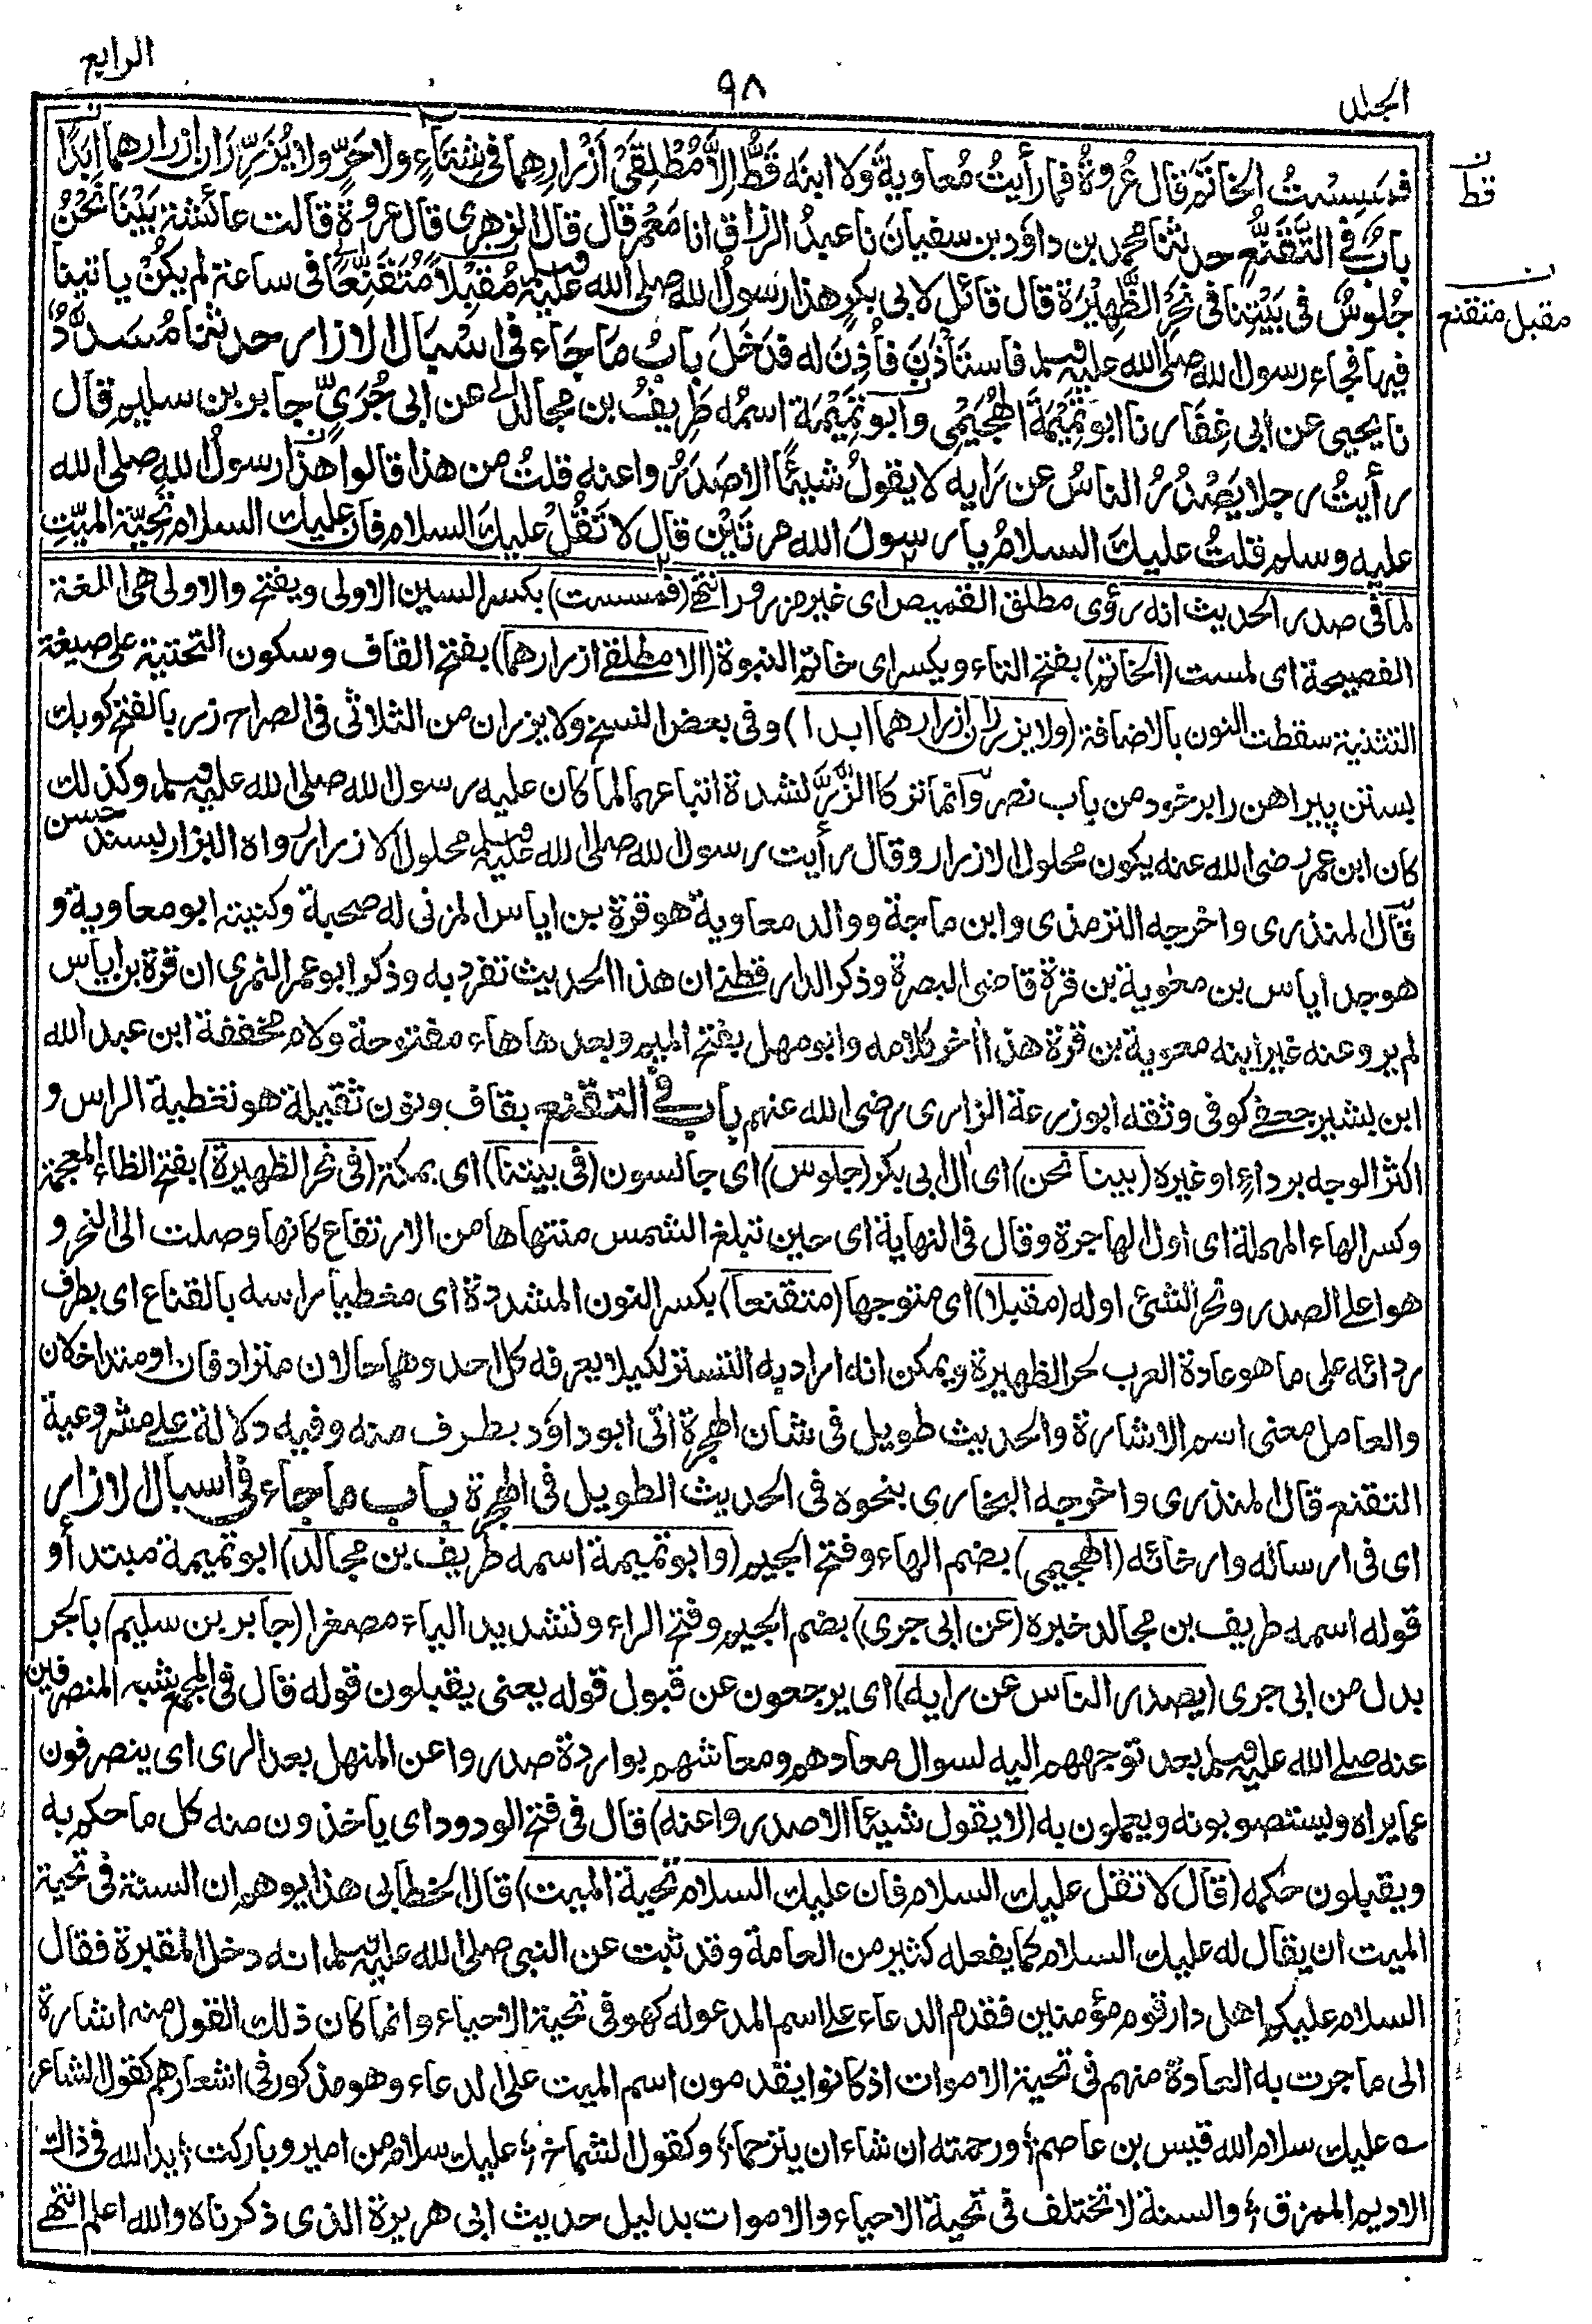 الجلد
٩٨
الرابع
فمَسِسْتُ الخاتَم قال عُروةُ فما رأيتُ مُعاويةَ ولا ابنَه قَطُّ إلاَّ مُطْلِقَيْ أَزْرارِهما فى شتاءٍ ولا حَرٍّ ولا يُزَرِّرَانِ ازرارهما ابدًا
بابٌ فى التَّقَنُّعِ حدثنا محمد بن داؤد بن سفيان نا عبدُ الرزاق انا مَعْمر قال قال الزهرى قال عروة قالت عائشة بَيْنَا نَحْنُ
جُلوسٌ فى بَيْتِنا فى نَحْرِ الظَّهِيْرَة قال قائل لابى بكرٍ هذا رسولُ الله صلى الله عليه وسلم مُقْبِلاً مُتَقَنِّعًا فى ساعة لم يكنْ ياتينا
فيها فجاء رسول الله صلى الله عليه وسلم فاستَأْذَنَ فأُذِنَ له فدَخَلَ بابُ ما جَاء فى اسْبَال الازار حدثنا مُسَدَّدٌ
نا يحيى عن ابى غِفَار نا ابو تَمِيْمَةَ الهُجَيْمِى وابو تَمِيْمَة اسمُه طَرِيْفُ بن مجالد عن ابى جُرَىٍّ جابر بن سليم قال
رأيتُ رجلا يَصْدُرُ الناسُ عن رَايه لا يقولُ شيئًا الا صَدَرُوا عنه قلتُ من هذا قالوا هذا رسولُ الله صلى الله
عليه وسلم قلتُ عليكَ السلامُ يا رسولَ الله مرتَيْن قال لا تَقُلْ عليكَ السلام فان عليك السلام تحيّة الميّتِ
لما فى صدر الحديث انه رؤى مطلق القميص اى غير مزرور انتهى (فمسست) بكسر السين الاولى ويفتح والاولى هى اللغة
الفصيحة اى لمست (الخاتم) بفتح التاء ويكسر اى خاتم النبوة (الا مطلقى ازرارهما) بفتح القاف وسكون التحتية على صيغة
التثنية سقطت النون بالاضافة (ولا يزرران ازرارهما ابدا) وفى بعض النسخ ولا يزران من الثلاثى فى الصراح زر بالفتح كوبك
بستن پيراهن را بر خود من باب نصر وانما تركا الزَّرَّ لشدة اتباعهما لما كان عليه رسول الله صلى الله عليه وسلم وكذلك
كان ابن عمر رضى الله عنه يكون محلول الازرار وقال رأيت رسول الله صلى الله عليه وسلم محلول الازرار رواه البزار بسند حسن
قال المنذرى واخرجه الترمذى وابن ماجة ووالد معاوية هو قرة بن اياس المزنى له صحبة وكنيته ابو معاوية و
هو جد اياس بن معوية بن قرة قاضى البصرة وذكر الدارقطنى ان هذا الحديث تفرد به وذكر ابو عمر النمرى ان قرة بن اياس
لم يرو عنه غير ابنه معوية بن قرة هذا أخر كلامه وابو مهل بفتح الميم وبعدها هاء مفتوحة ولام مخففة ابن عبد الله
ابن بشير جعفى كوفى وثقه ابو زرعة الرازى رضى الله عنهم باب فى التقنع بقاف ونون ثقيلة هو تغطية الراس و
اكثر الوجه برداء او غيره (بينا نحن) اى أل ابى بكر (جلوس) اى جالسون (فى بيتنا) اى بمكة (فى نحر الظهيرة) بفتح الظاء المعجمة
وكسر الهاء المهملة اى اول الهاجرة وقال فى النهاية اى حين تبلغ الشمس منتهاها من الارتفاع كانها وصلت الى النحر و
هو اعلى الصدر ونحر الشئ اوله (مقبلا) اى متوجها (متقنعا) بكسر النون المشددة اى مغطيا راسه بالقناع اى بطرف
ردائه على ما هو عادة العرب لحر الظهيرة ويمكن انه اراد به التستر لكيلا يعرفه كل احد وهما حالان مترادفان او متداخلان
والعامل معنى اسم الاشارة والحديث طويل فى شان الهجرة اتى ابو داؤد بطرف منه وفيه دلالة على مشروعية
التقنع قال المنذرى واخرجه البخارى بنحوه فى الحديث الطويل فى الهجرة باب ما جاء فى اسبال الازار
اى فى ارساله وارخائه (الهجيمى) بضم الهاء وفتح الجيم (وابو تميمة اسمه طريف بن مجالد) ابو تميمة مبتدأ و
قوله اسمه طريف بن مجالد خبره (عن ابى جرى) بضم الجيم وفتح الراء وتشديد الياء مصغرا (جابر بن سليم) بالجر
بدل من ابى جرى (يصدر الناس عن رايه) اى يرجعون عن قبول قوله يعنى يقبلون قوله قال فى المجمع شبه المنصرفين
عنه صلى الله عليه وسلم بعد توجههم اليه لسوال معادهم ومعاشهم بواردة صدروا عن المنهل بعد الرى اى ينصرفون
عما يراه ويستصوبونه ويعملون به (لا يقول شيئا الا صدروا عنه) قال فى فتح الودود اى ياخذون منه كل ما حكم به
ويقبلون حكمه (قال لا تقل عليك السلام فان عليك السلام تحية الميت) قال الخطابى هذا يوهم ان السنة فى تحية
الميت ان يقال له عليك السلام كما يفعله كثير من العامة وقد ثبت عن النبى صلى الله عليه وسلم انه دخل المقبرة فقال
السلام عليكم اهل دار قوم مؤمنين فقدم الدعاء على اسم المدعو له كهو فى تحية الاحياء وانما كان ذلك القول منه اشارة
الى ما جرت به العادة منهم فى تحية الاموات اذ كانوا يقدمون اسم الميت على الدعاء وهو مذكور فى اشعارهم كقول الشاعر
عليك سلام الله قيس بن عاصم ؛ ورحمته ان شاء ان يترحما ؛ وكقول الشماخ ؛ عليك سلام من امير وباركت ؛ يد الله فى ذاك
الاديم الممزق ؛ والسنة لا تختلف فى تحية الاحياء والاموات بدليل حديث ابى هريرة الذى ذكرناه والله اعلم انتهى
ن
قط
ن
مقبل متقنع